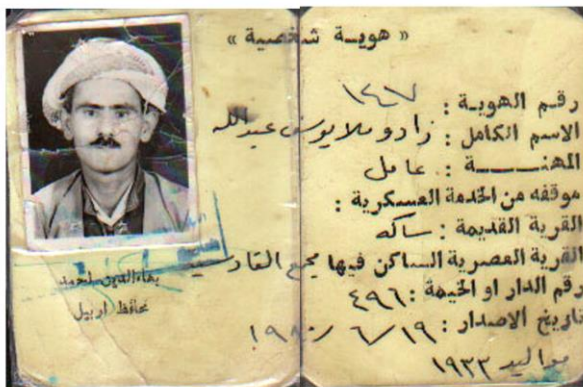 « هويـة شخصية »
رقم الهوية : ١٤٦٧
الاسم الكامل : زادو ملا يونس عبدالله
المهنـــة : عامل
موقفه من الخدمة العسكرية :
القرية القديمة : ساكه
القرية العصرية الساكن فيها مجمع القادسية
رقم الدار او الخيمة : ٤٩٦
تاريخ الاصدار : ١٩ / ٦ / ١٩٨٠
مواليد ١٩٣٣
بهاءالدين احمد
محافظ اربيل